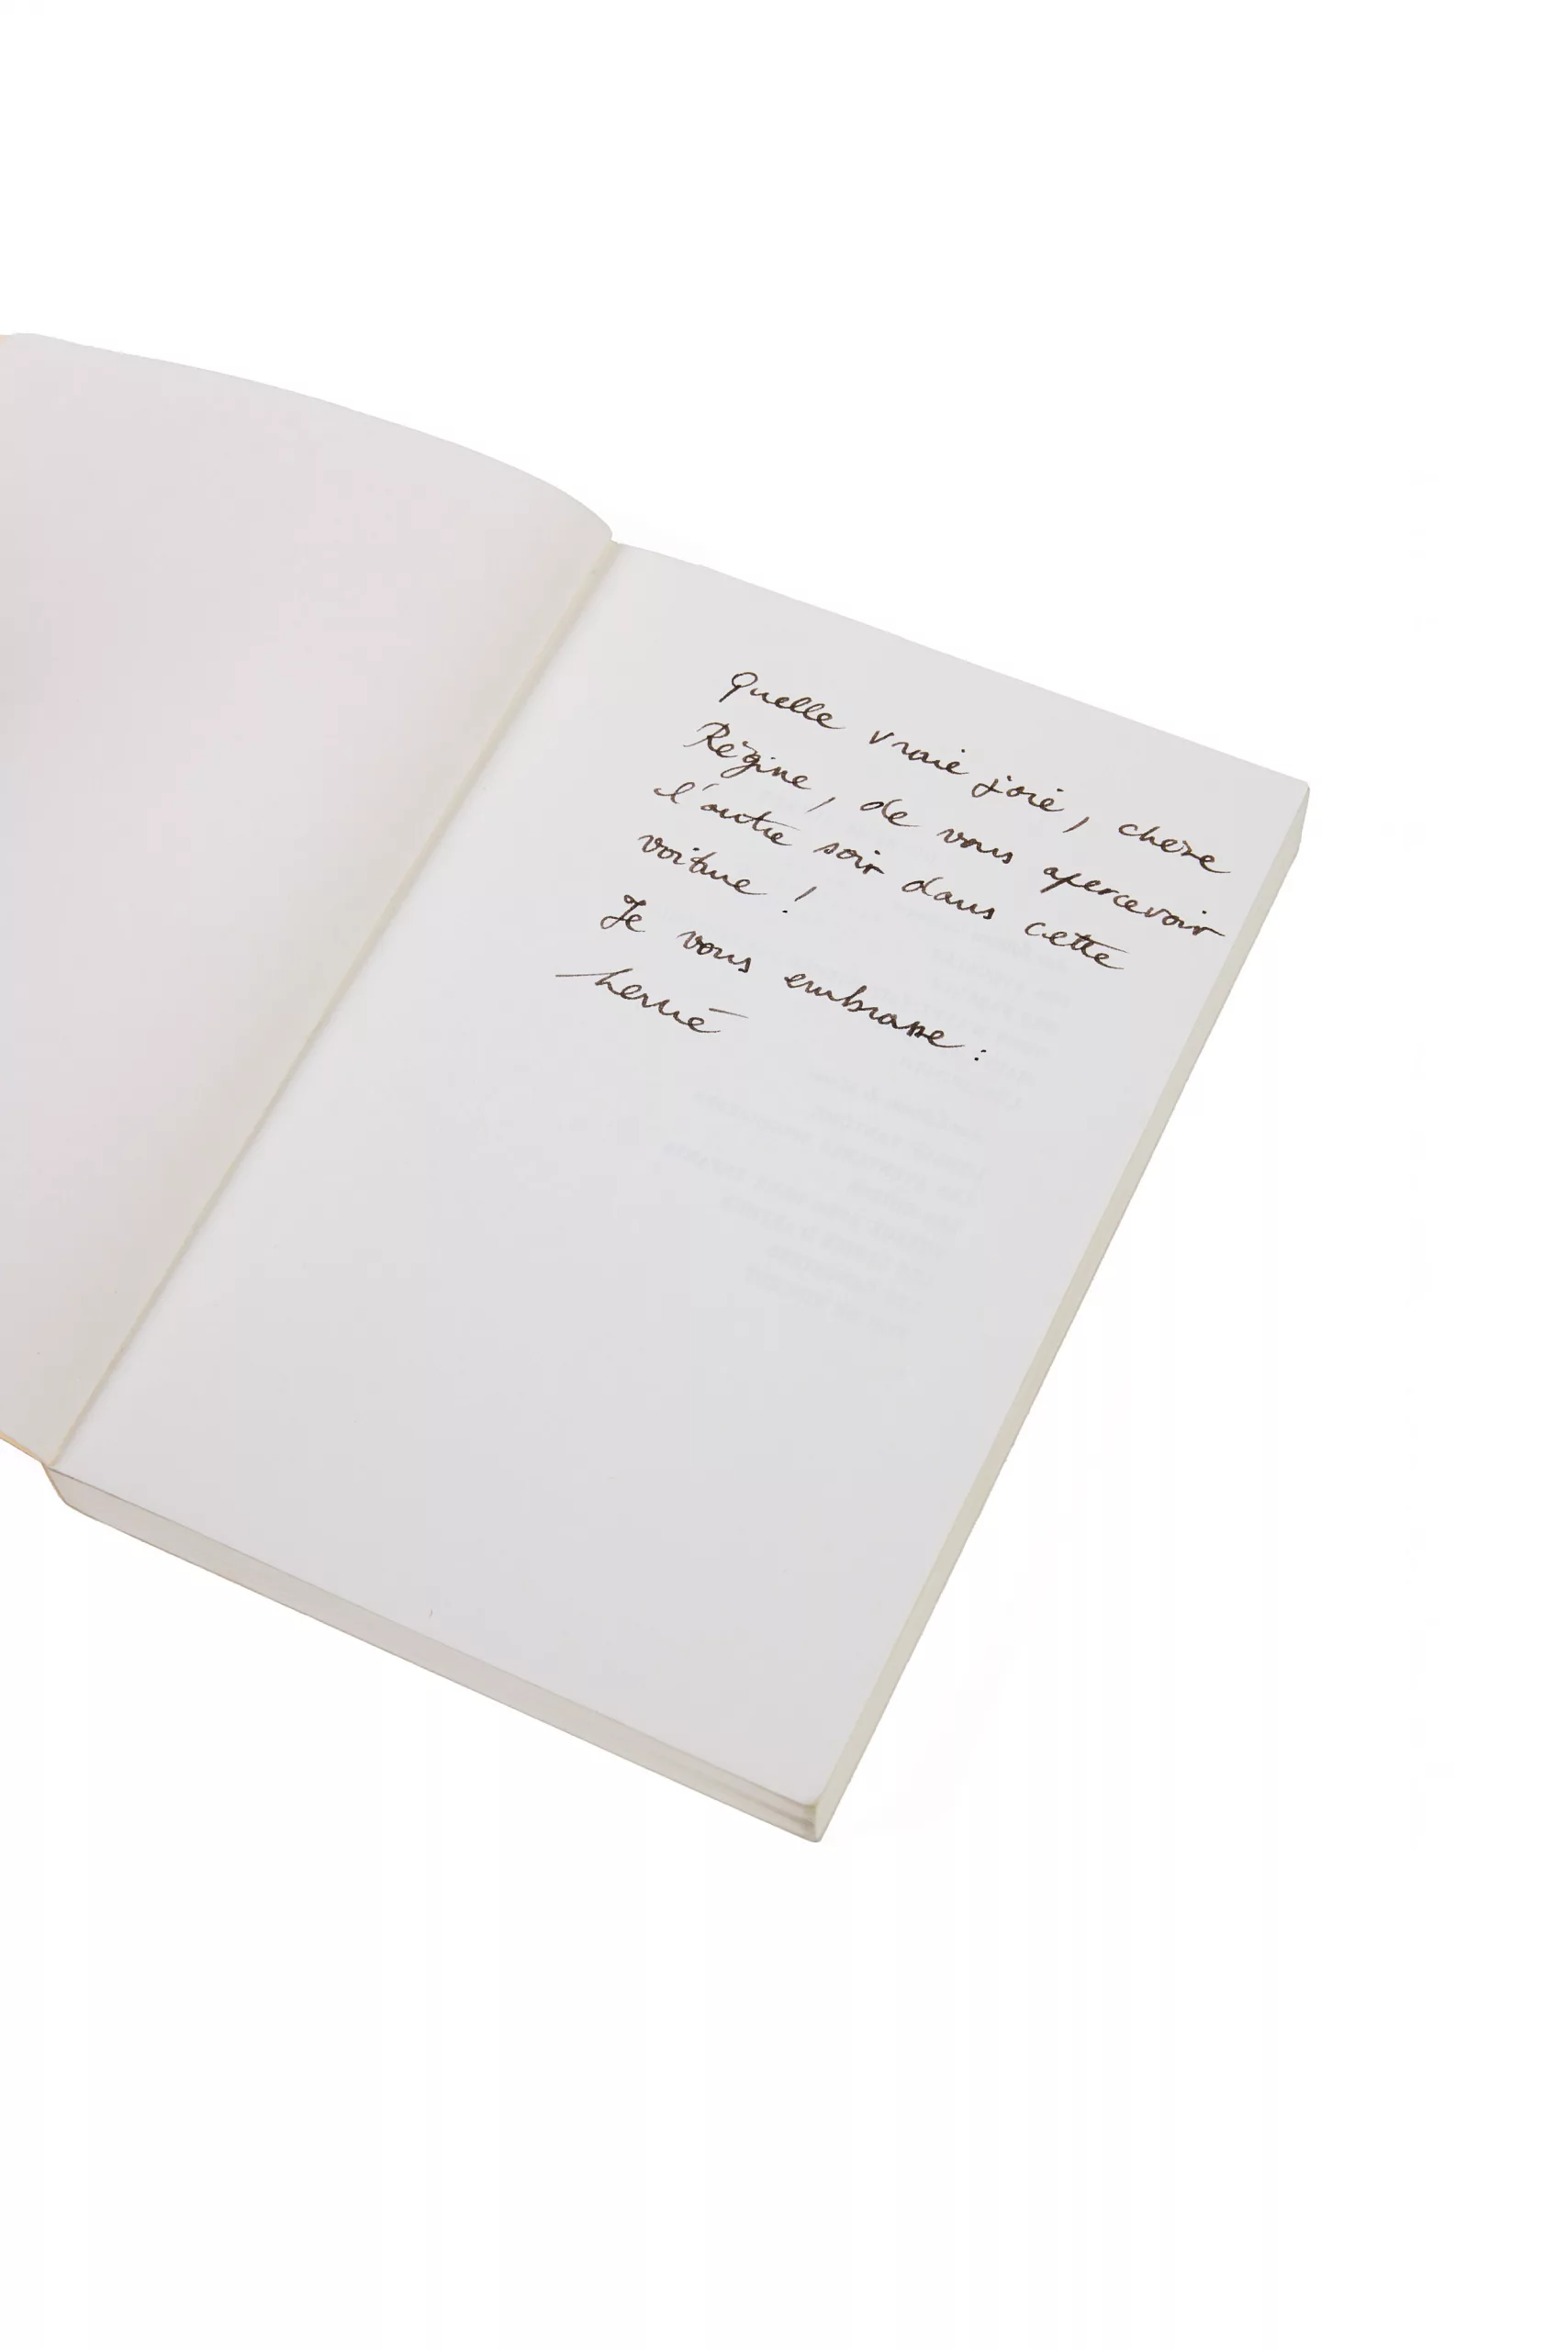 Quelle vraie joie, chère
Régine, de vous apercevoir
l'autre soir dans cette
voiture !
Je vous embrasse :
hervé